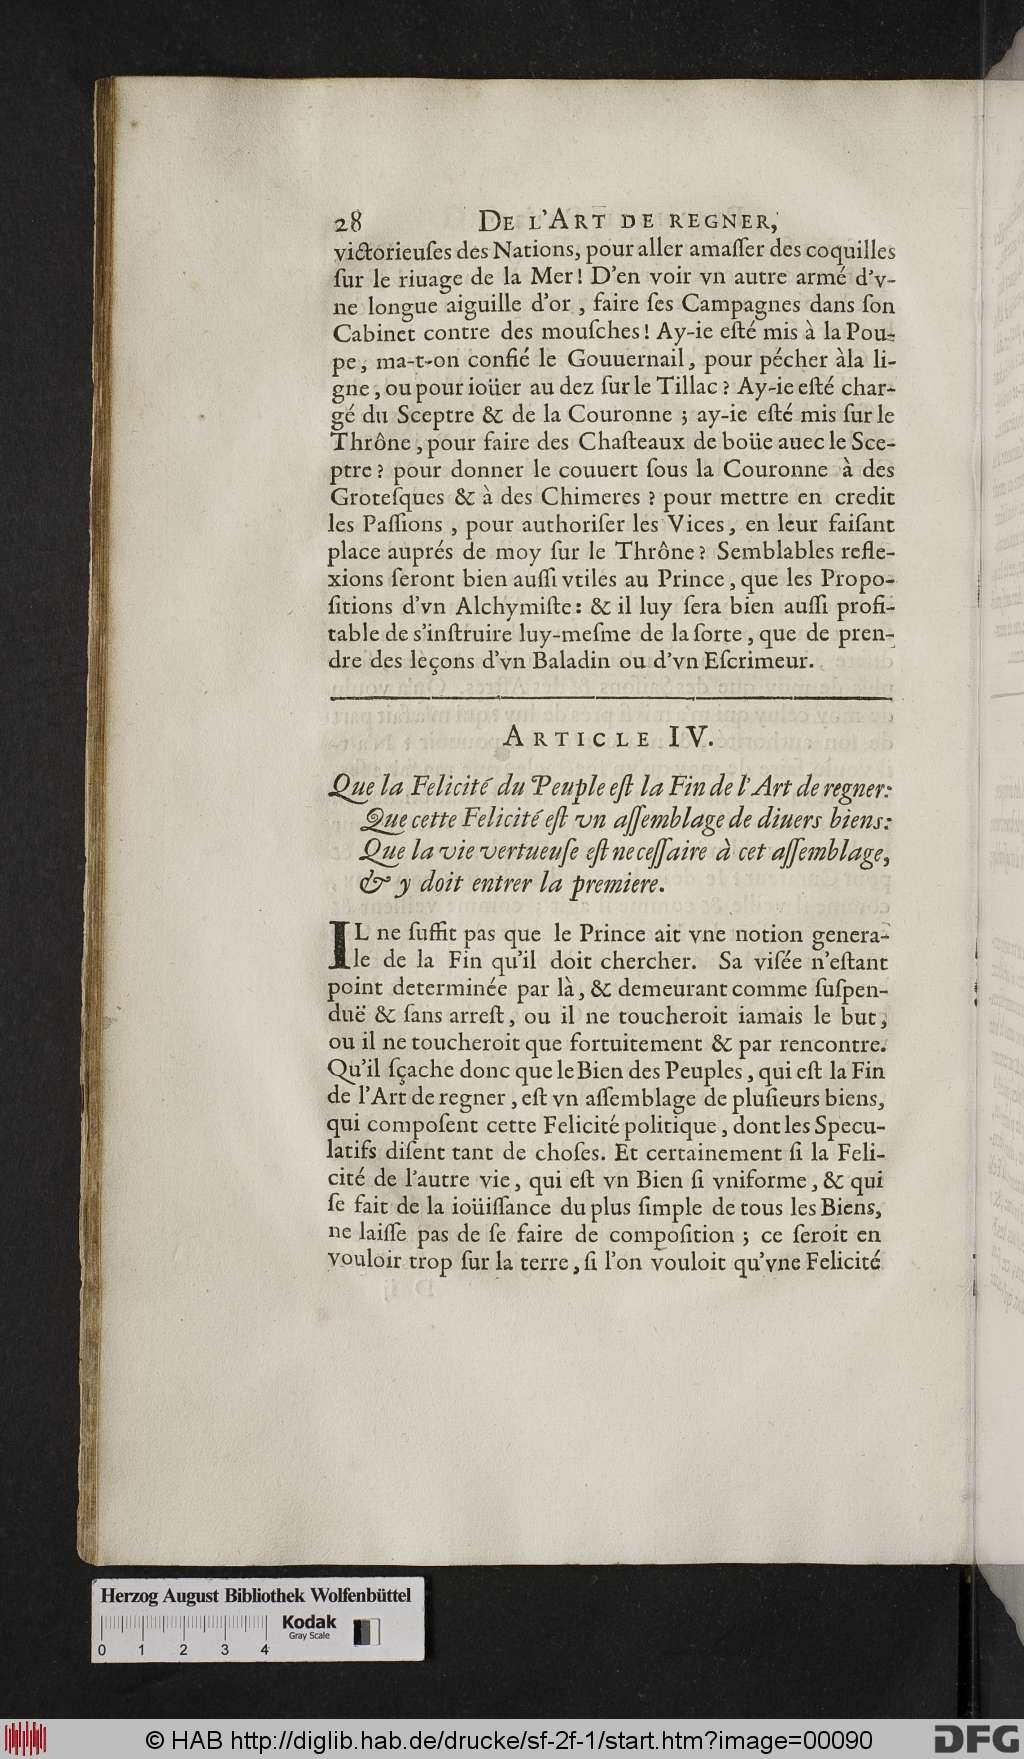 28 DE L'ART DE REGNER,
victorieuſes des Nations, pour aller amaſſer des coquilles
ſur le riuage de la Mer! D'en voir vn autre armé d'v-
ne longue aiguille d'or, faire ſes Campagnes dans ſon
Cabinet contre des mouſches! Ay-ie eſté mis à la Pou-
pe, ma-t-on confié le Gouuernail, pour pécher àla li-
gne, ou pour ioüer au dez ſur le Tillac? Ay-ie eſté char-
gé du Sceptre & de la Couronne; ay-ie eſté mis ſur le
Thrône, pour faire des Chaſteaux de boüe auec le Sce-
ptre? pour donner le couuert ſous la Couronne à des
Groteſques & à des Chimeres? pour mettre en credit
les Paſſions, pour authoriſer les Vices, en leur faiſant
place auprés de moy ſur le Thrône? Semblables refle-
xions ſeront bien auſſi vtiles au Prince, que les Propo-
ſitions d'vn Alchymiſte: & il luy ſera bien auſſi profi-
table de s'inſtruire luy-meſme de la ſorte, que de pren-
dre des leçons d'vn Baladin ou d'vn Eſcrimeur.
ARTICLE IV.
Que la Felicité du Peuple eſt la Fin de l'Art de regner:
Que cette Felicité eſt vn aſſemblage de diuers biens:
Que la vie vertueuſe eſt neceſſaire à cet aſſemblage,
& y doit entrer la premiere.
IL ne ſuffit pas que le Prince ait vne notion genera-
le de la Fin qu'il doit chercher. Sa viſée n'eſtant
point determinée par là, & demeurant comme ſuſpen-
duë & ſans arreſt, ou il ne toucheroit iamais le but,
ou il ne toucheroit que fortuitement & par rencontre.
Qu'il ſçache donc que le Bien des Peuples, qui eſt la Fin
de l'Art de regner, eſt vn aſſemblage de pluſieurs biens,
qui compoſent cette Felicité politique, dont les Specu-
latifs diſent tant de choſes. Et certainement ſi la Feli-
cité de l'autre vie, qui eſt vn Bien ſi vniforme, & qui
ſe fait de la ioüiſſance du plus ſimple de tous les Biens,
ne laiſſe pas de ſe faire de compoſition; ce ſeroit en
vouloir trop ſur la terre, ſi l'on vouloit qu'vne Felicité
Herzog August Bibliothek Wolfenbüttel
Kodak
Gray Scale
0 1 2 3 4
© HAB http://diglib.hab.de/drucke/sf-2f-1/start.htm?image=00090
DFG